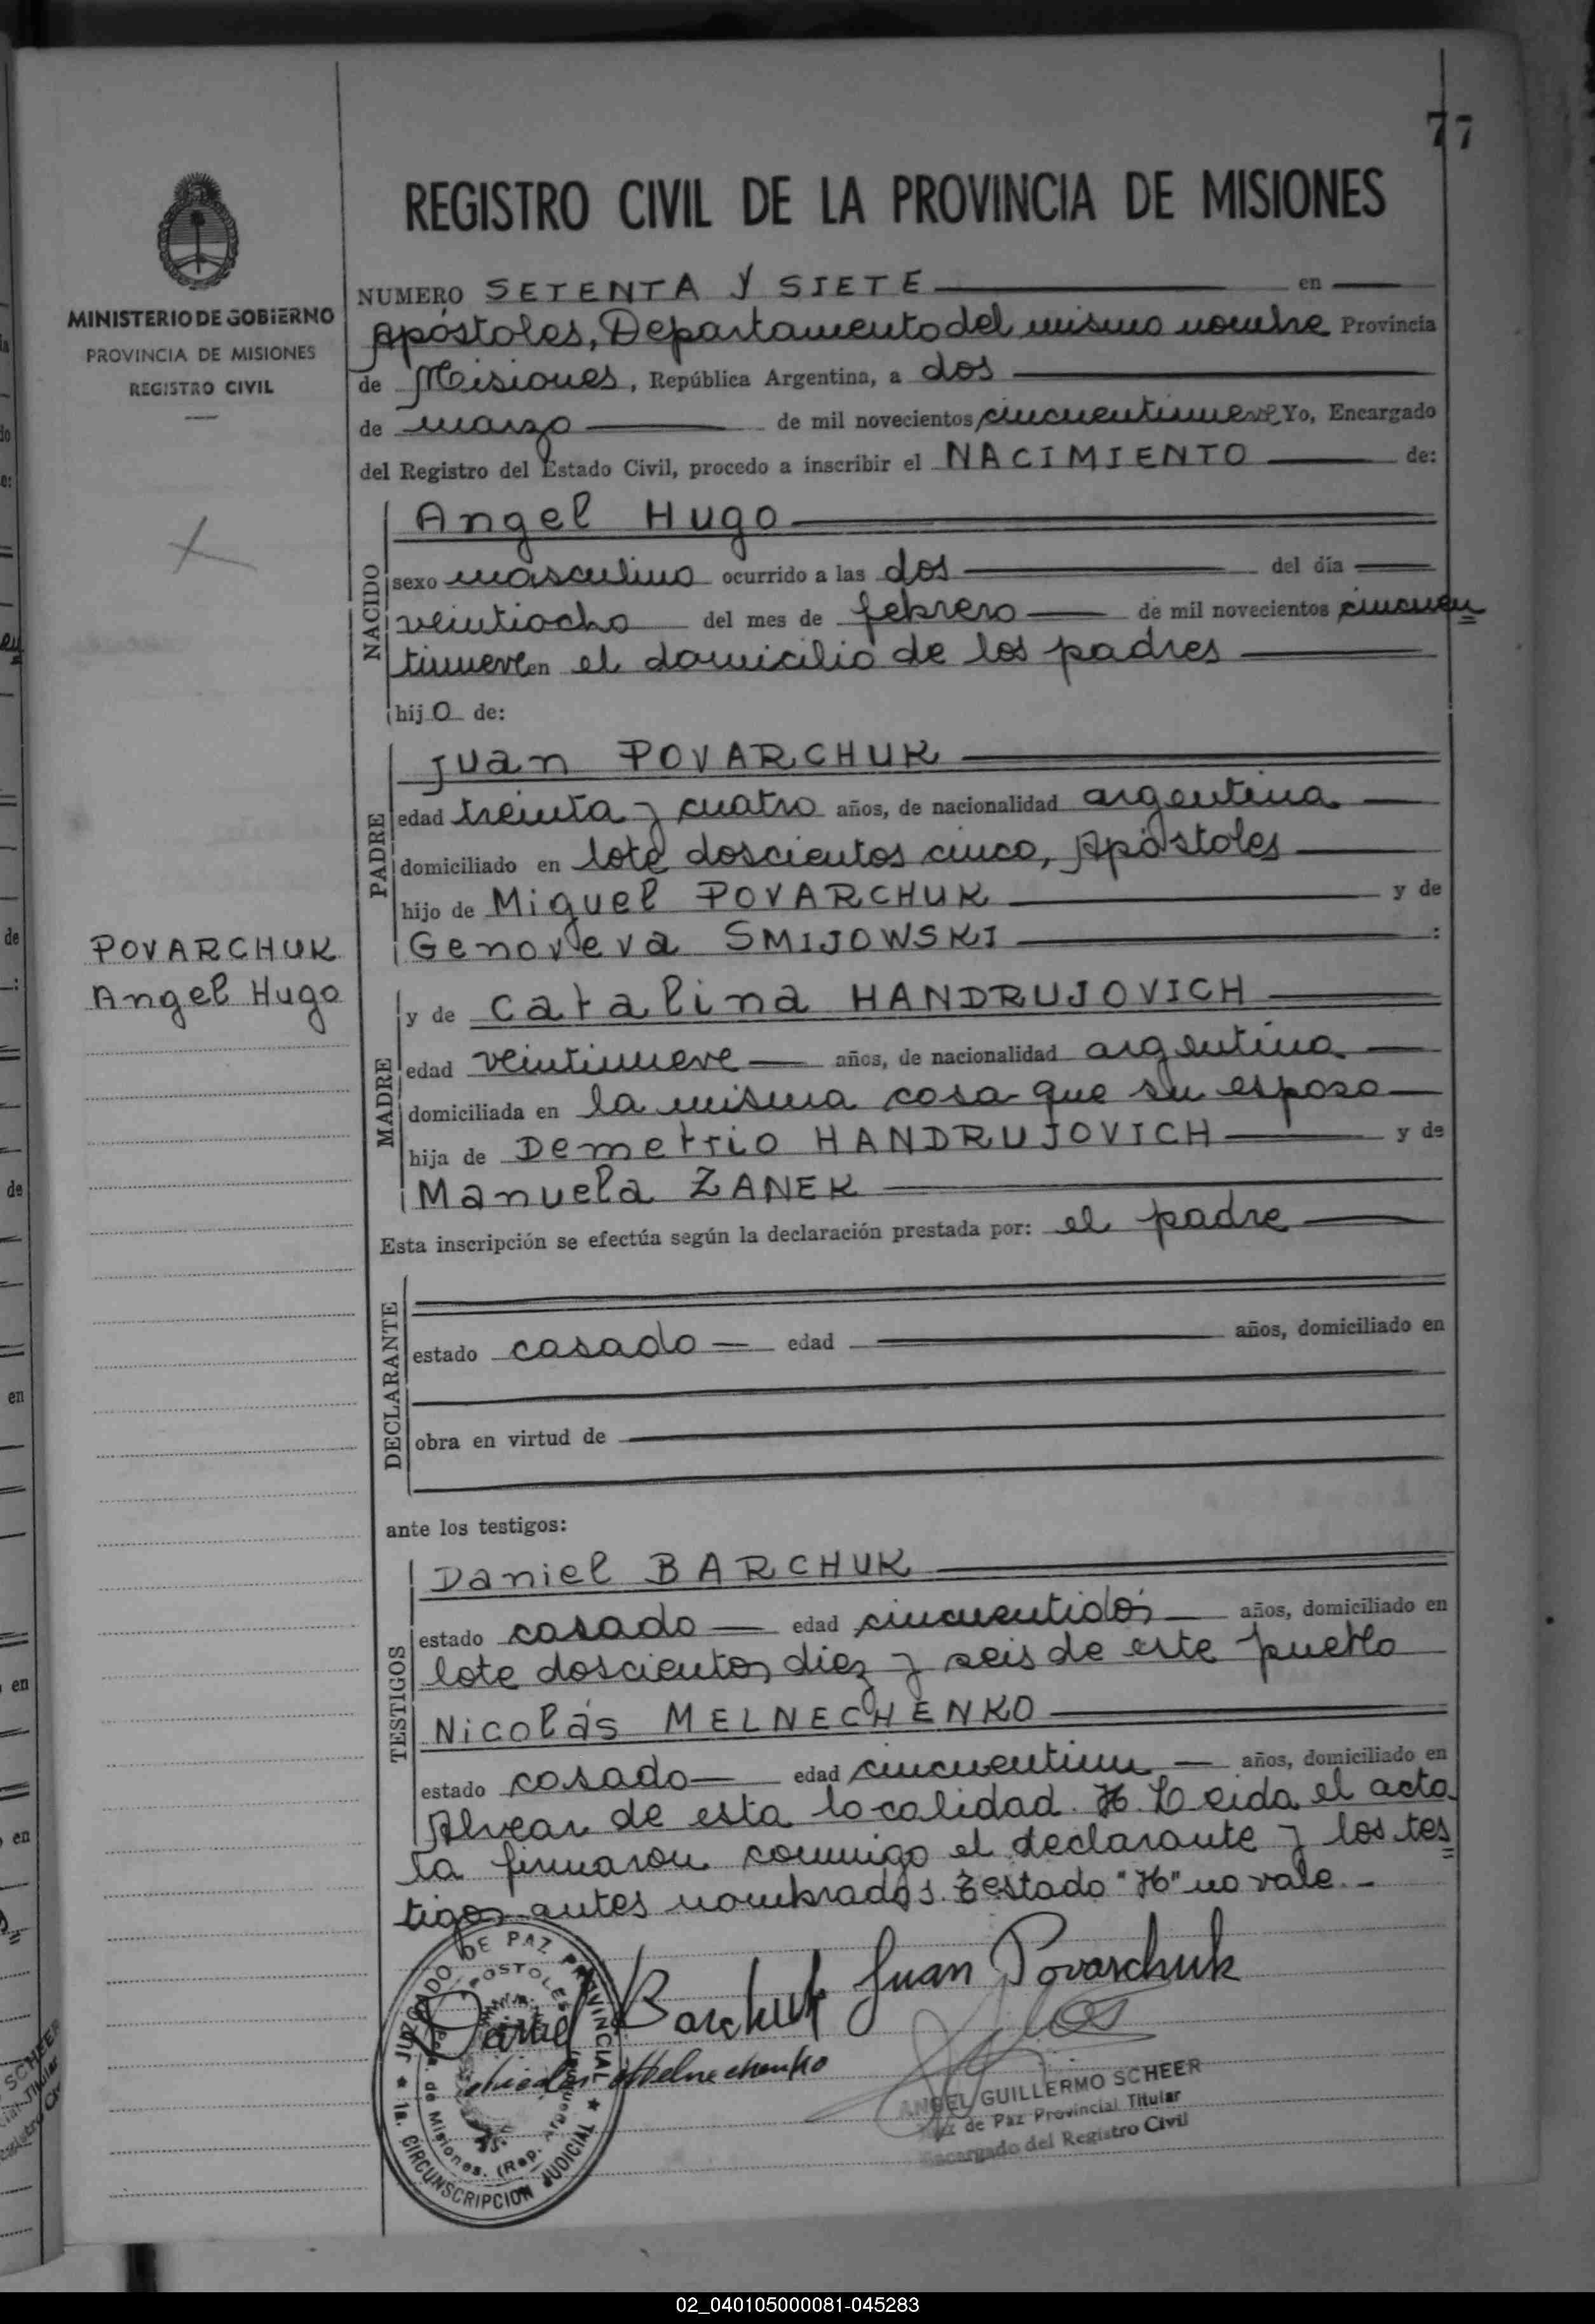 77
REGISTRO CIVIL DE LA PROVINCIA DE MISIONES
MINISTERIO DE GOBIERNO
PROVINCIA DE MISIONES
REGISTRO CIVIL
NUMERO SETENTA Y SIETE en
Apóstoles, Departamento del mismo nombre Provincia
de Misiones, República Argentina, a dos
de marzo de mil novecientos cincuentinueve Yo, Encargado
del Registro del Estado Civil, procedo a inscribir el NACIMIENTO de:
NACIDO
Angel Hugo
sexo masculino ocurrido a las dos del día
veintiocho del mes de febrero de mil novecientos cincuen
tinueve en el domicilio de los padres
hijo de:
PADRE
Juan POVARCHUK
edad treinta y cuatro años, de nacionalidad argentina
domiciliado en lote doscientos cinco, Apóstoles
hijo de Miguel POVARCHUK y de
Genoveva SMIJOWSKI :
POVARCHUK
Angel Hugo
MADRE
y de Catalina HANDRUJOVICH
edad veintinueve años, de nacionalidad argentina
domiciliada en la misma casa que su esposo
hija de Demetrio HANDRUJOVICH y de
Manuela ZANEK
Esta inscripción se efectúa según la declaración prestada por: el padre
DECLARANTE
estado casado edad años, domiciliado en
obra en virtud de
ante los testigos:
TESTIGOS
Daniel BARCHUK
estado casado edad cincuentidós años, domiciliado en
lote doscientos diez y seis de este pueblo
Nicolás MELNECHENKO
estado casado edad cincuentiun años, domiciliado en
Alvear de esta localidad. H. Leida el acta
la firmaron conmigo el declarante y los tes
tigos antes nombrados. Testado "H" no vale.-
Daniel Barchuk Juan Povarchuk
Nicolas Melnechenko
JUZGADO DE PAZ PROVINCIAL
APOSTOLES
de Misiones. (Rep. Argentina)
1a. CIRCUNSCRIPCION JUDICIAL
ANGEL GUILLERMO SCHEER
Juez de Paz Provincial Titular
Encargado del Registro Civil
02_040105000081-045283